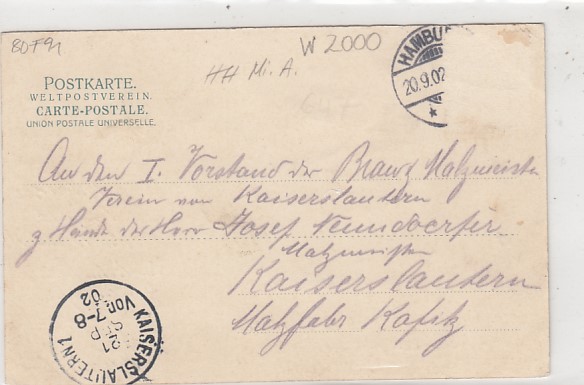 BDF91
W 2000
HH Mi. A.
HAMBU
20.9.02
POSTKARTE.
WELTPOSTVEREIN.
CARTE-POSTALE.
UNION POSTALE UNIVERSELLE.
An den I. Vorstand der Brau & Malzmeister
Verein von Kaiserslautern
z Hände der Herr Josef Neundorfer
Malzmeister
Kaiserslautern
Malzfabr
KAISERSLAUTERN 1
21
SEP
Vor. 7-8
02